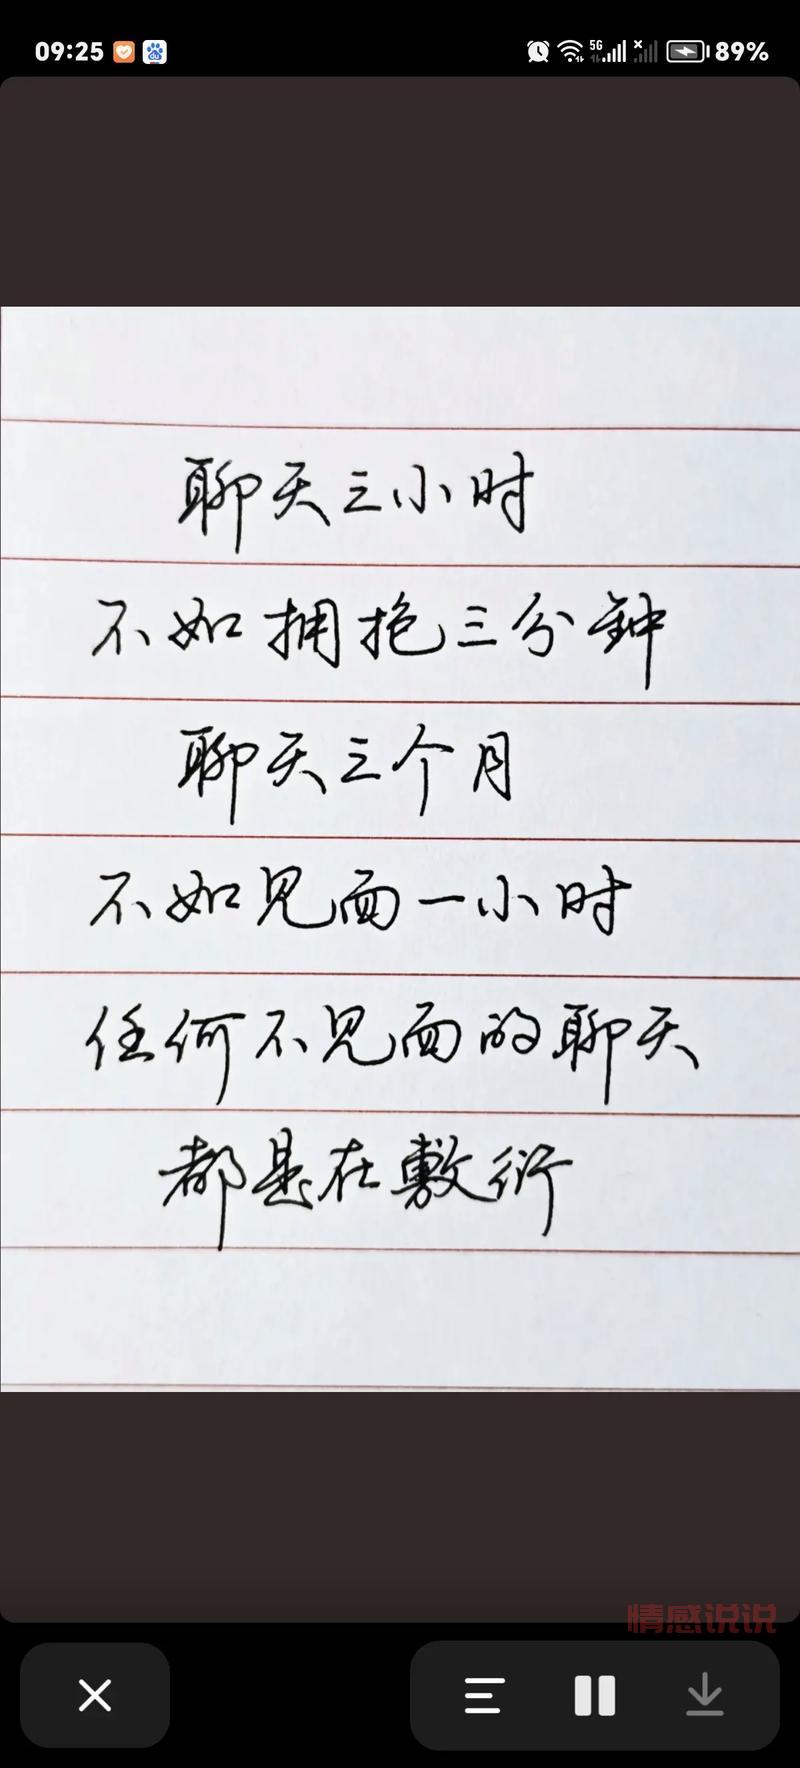 09:25
5G
89%
聊天三小时
不如拥抱三分钟
聊天三个月
不如见面一小时
任何不见面的聊天
都是在敷衍
情感说说